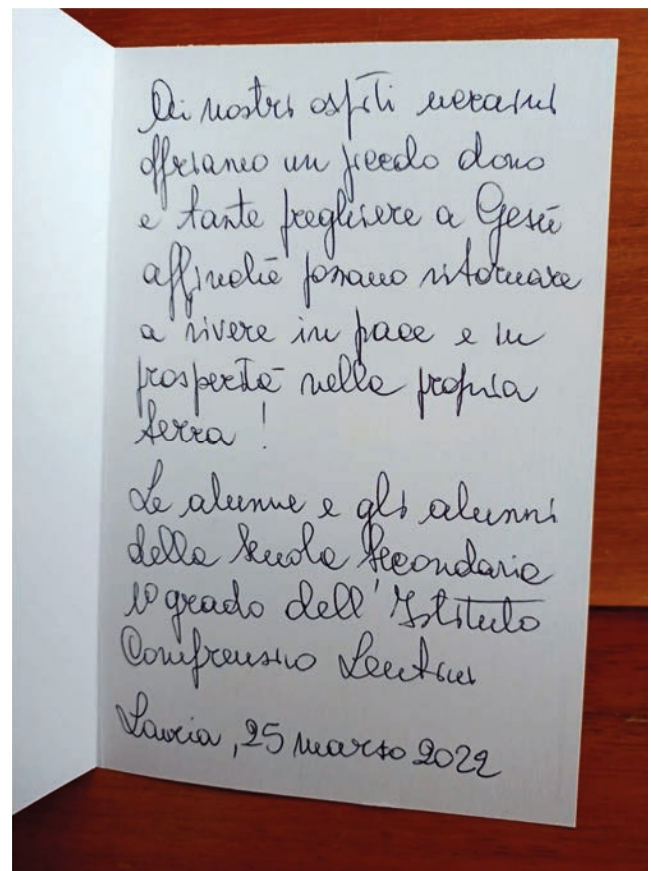 Ai nostri ospiti ucraini
offriamo un piccolo dono
e tante preghiere a Gesù
affinché possano ritornare
a vivere in pace e in
prosperità nella propria
terra !
Le alunne e gli alunni
della Scuola Secondaria
1º grado dell'Istituto
Comprensivo Lentini
Lauria, 25 marzo 2022